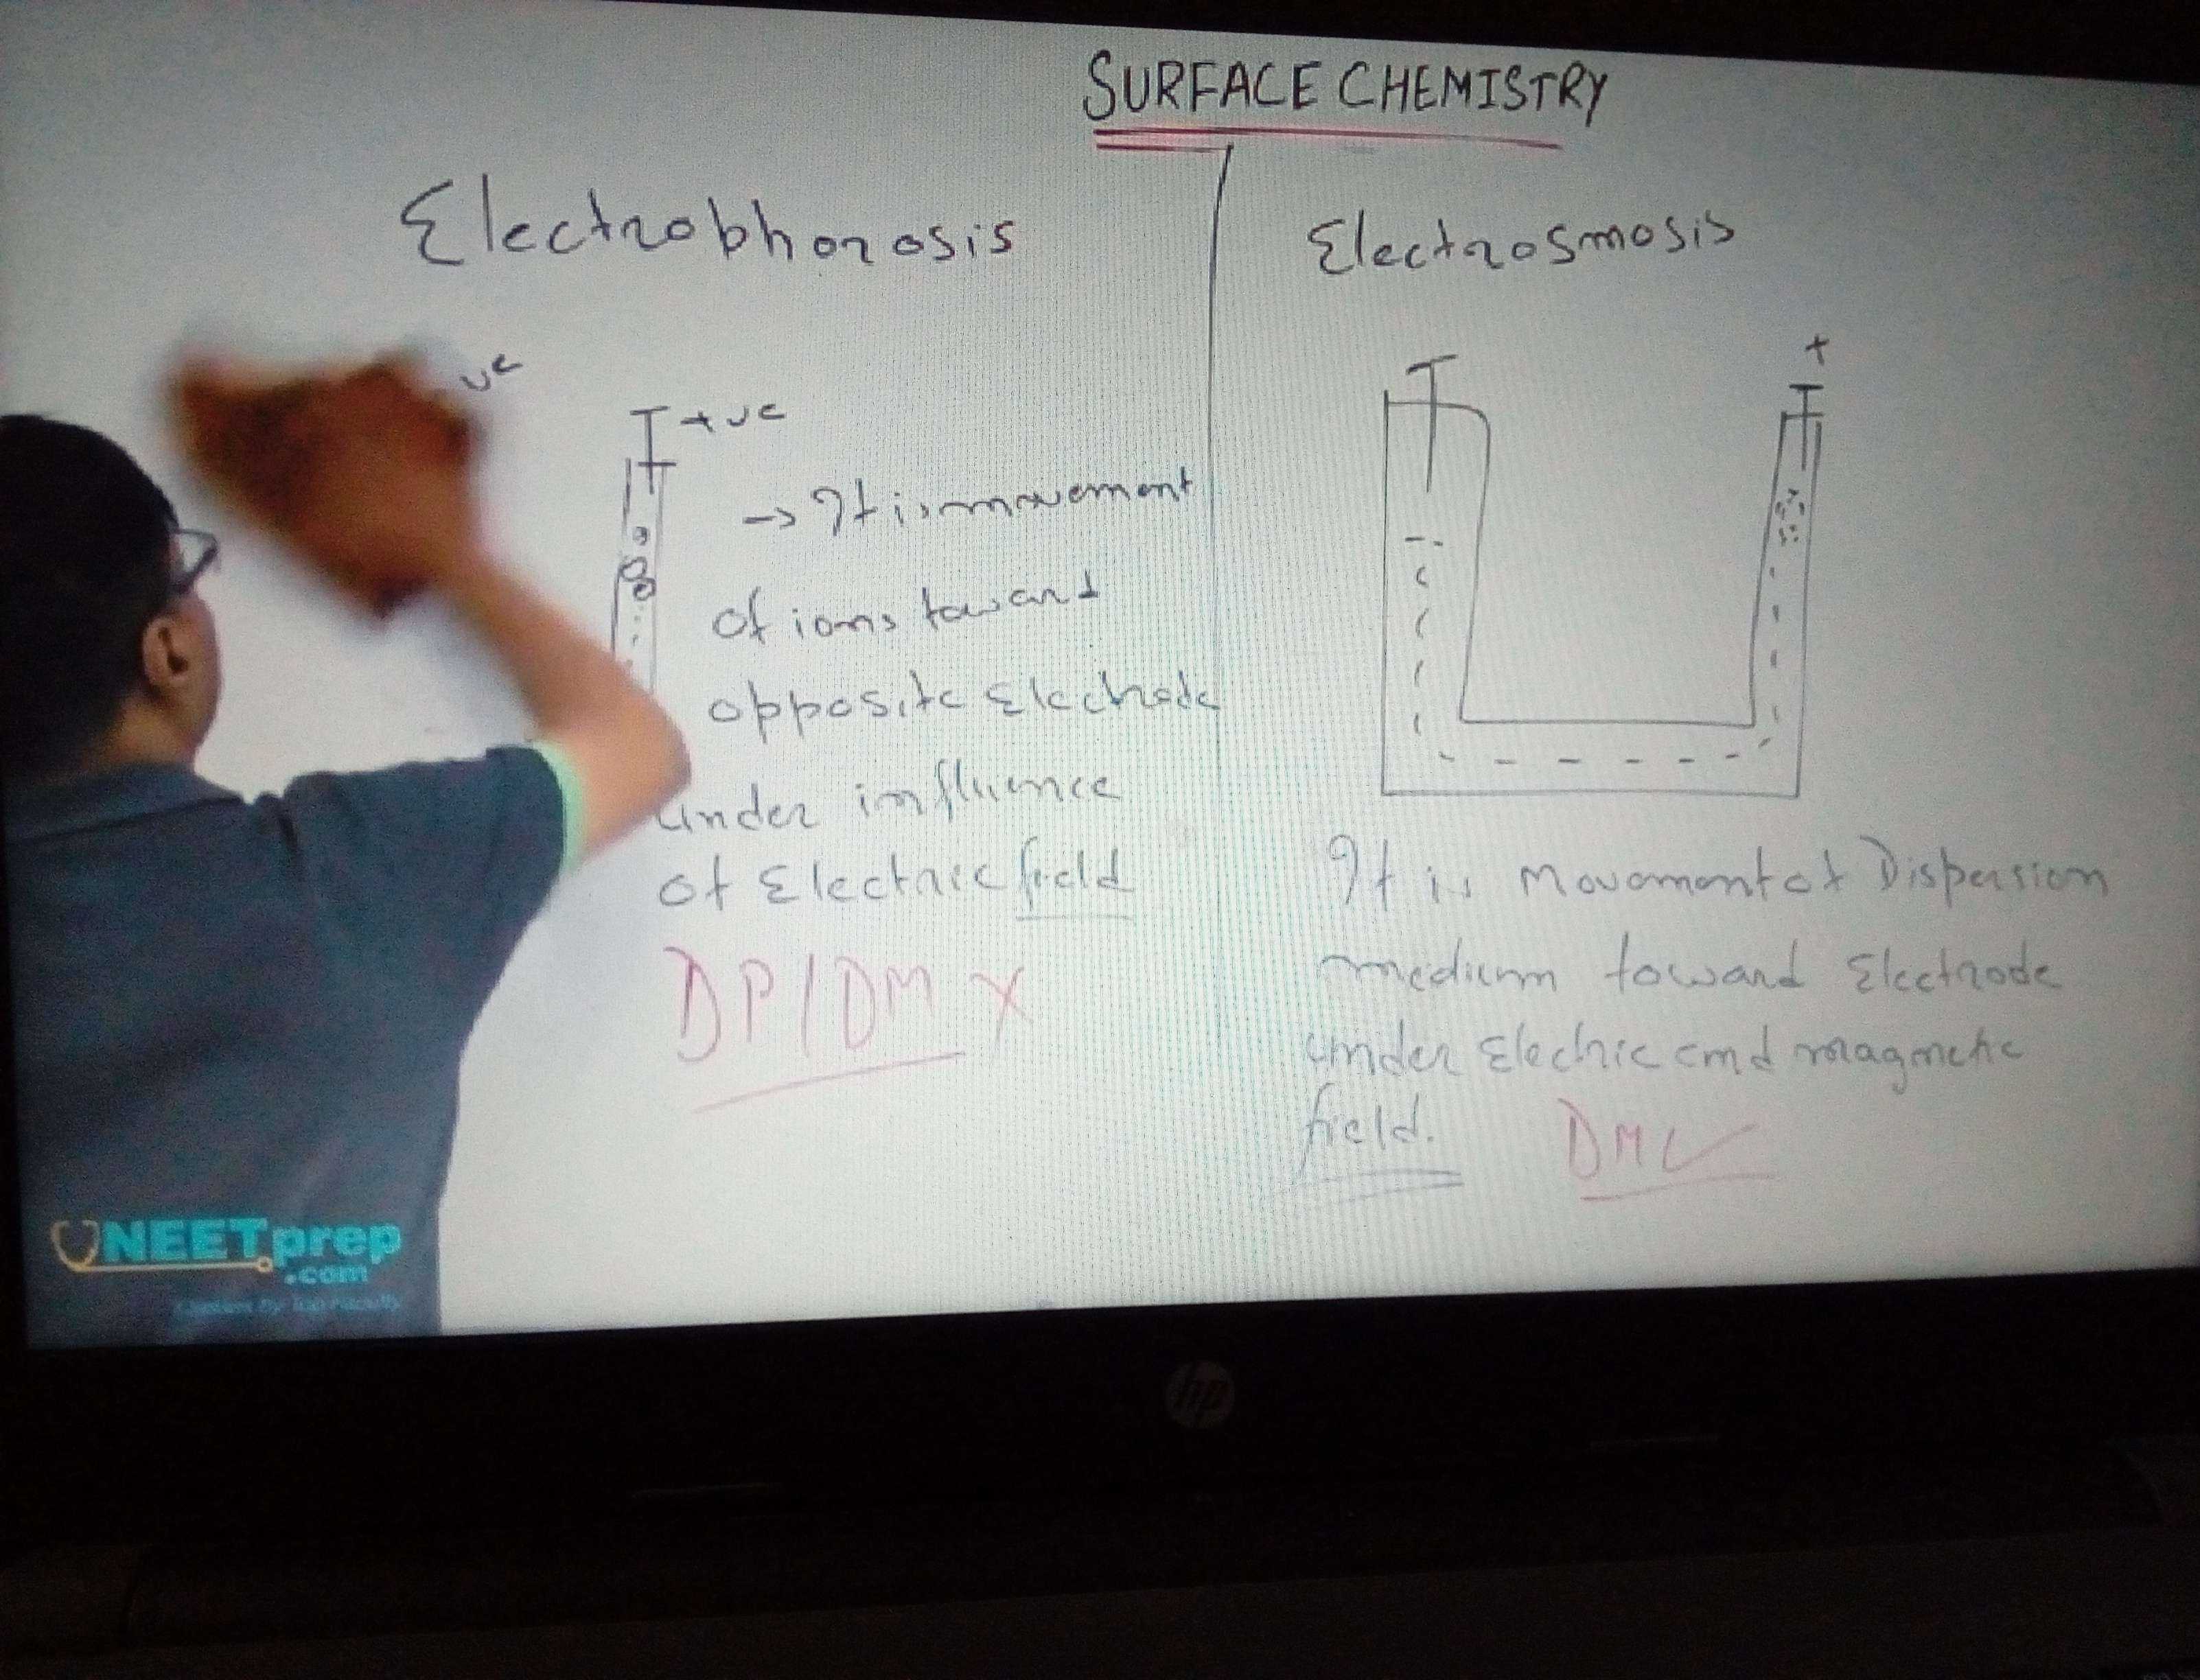 SURFACE CHEMISTRY
Electrophorosis
ve
+ve
→ It is movement
of ions toward
opposite Electrode
under influence
of Electric field
DP/DM X
Electrosmosis
+
It is Movement of Dispersion
medium toward Electrode
under Electric and magnetic
field.
DM ✓
NEETprep
.com
hp